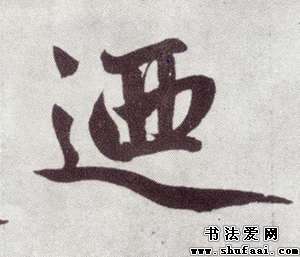 迺
书法爱网
www.shufaai.com